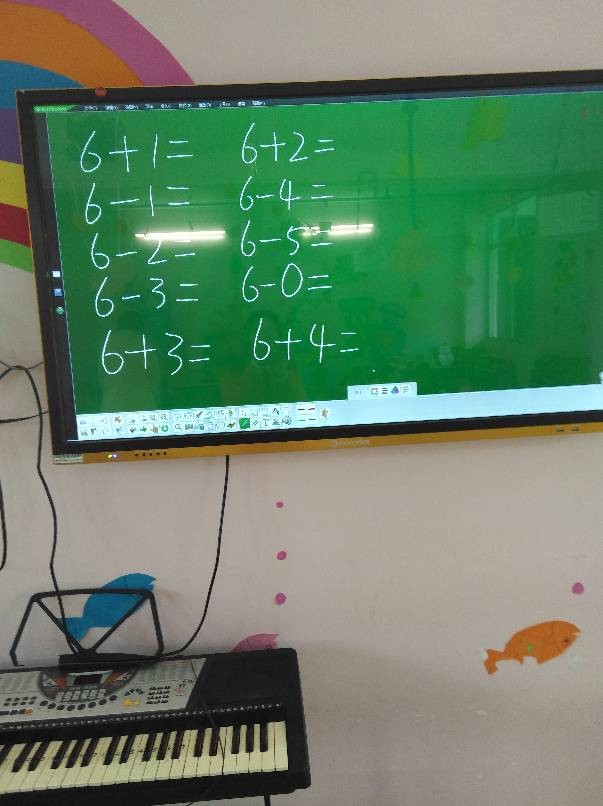 6+1= 6+2=
6-1= 6-4=
6-2= 6-5=
6-3= 6-0=
6+3= 6+4=